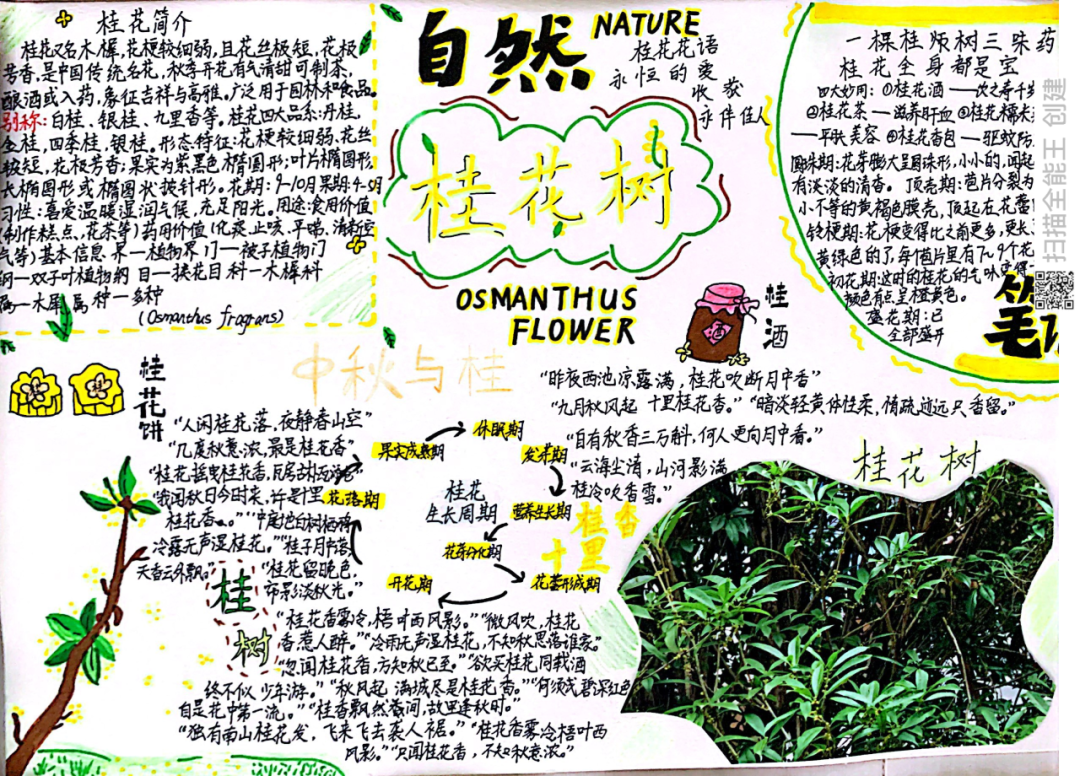 桂花简介
桂花又名木樨,花梗较细弱,且花丝极短,花极
芳香,是中国传统名花,秋季开花有气清甜可制茶,
酿酒或入药,象征吉祥与高雅。广泛用于园林和食品。
别称:白桂、银桂、九里香等。桂花四大品系:丹桂,
金桂,四季桂,银桂。形态特征:花梗较细弱:花丝
极短,花极芳香;果实为紫黑色椭圆形;叶片椭圆形,
长椭圆形或椭圆状披针形。花期:9-10月果期:4-5月
习性:喜爱温暖湿润气候,充足阳光。用途:食用价值
(制作糕点,花茶等)药用价值(化痰、止咳、平喘,清新空
气等)基本信息 界一植物界 门一被子植物门
纲一双子叶植物纲 目一捩花目 科一木樨科
属一木犀属 种一多种
(Osmanthus fragrans)
自然
NATURE
桂花花语
永恒的爱
收获
永伴佳人
桂花树
OSMANTHUS
FLOWER
酒
桂酒
一棵桂树三味药
桂花全身都是宝
四大妙用:①桂花酒——饮之寿千岁
②桂花茶——滋养肝血 ③桂花糯米
——平肤美容 ④桂花香包——驱蚊防
圆珠期:花芽膨大呈圆珠形,小小的,闻起
有淡淡的清香。 顶壳期:苞片分裂为
小不等的黄褐色膜壳,顶起在花蕾
铃梗期:花梗变得比之前更多,更长
黄绿色的了,每苞片里有7~9个花
初花期:这时的桂花的气味更得
颜色有点呈橙黄色。
盛花期:已
全部盛开
笔记
桂花饼
中秋与桂
“人闲桂花落,夜静春山空”
“几度秋意浓,最是桂花香”
“桂花摇曳桂花香,
“我闻秋日今时来,许是十里
桂花香。”“中庭地白树栖鸦
冷露无声湿桂花。”“桂子月中落,
天香云外飘。”
“桂花留晚色,
帘影淡秋光。”
“昨夜西池凉露满,桂花吹断月中香”
“九月秋风起 十里桂花香。”“暗淡轻黄体性柔,情疏迹远只香留。”
“自有秋香三万斛,何人更向月中看。”
“云海尘清,山河影满
桂冷吹香雪。”
桂花
生长周期
休眠期
发芽期
营养生长期
花芽分化期
花蕾形成期
开花期
花落期
果实成熟期
桂香
十里
桂树
“桂花香雾冷,梧叶西风影。”“微风吹,桂花
香,惹人醉。”“冷雨无声湿桂花,不知秋思落谁家。”
“忽闻桂花香,方知秋已至。”“欲买桂花同载酒
终不似,少年游。”“秋风起 满城尽是桂花香。”“何须浅碧深红色
自是花中第一流。”“桂香飘然巷间,故里逢秋时。”
“独有南山桂花发,飞来飞去袭人裾。”“桂花香雾冷梧叶西
风影。”“只闻桂花香,不知秋意浓。”
桂花树
扫描全能王 创建